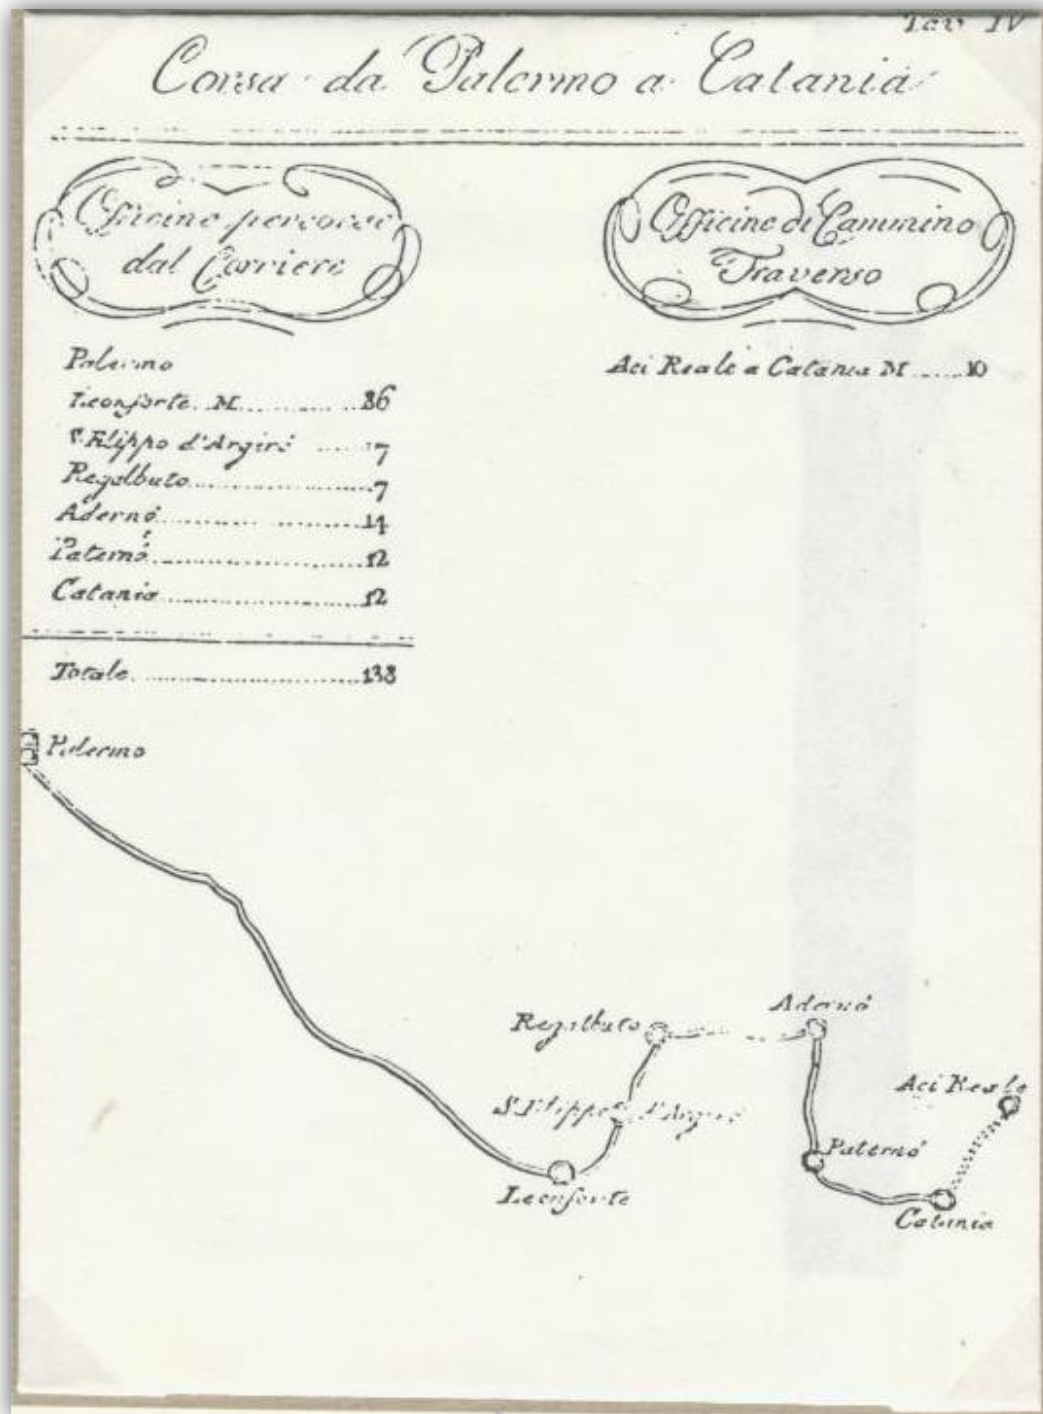 Tav IV
Corsa da Palermo a Catania
Officine percorse
dal Corriere
Palermo
Leonforte. M............86
S. Filippo d'Argirò ......7
Regalbuto..................7
Adernó..................14
Paternó..................12
Catania..................12
Totale..................138
Officine di Cammino
Traverso
Aci Reale a Catania M......10
Palermo
Regalbuto
Adernó
Aci Reale
S. Filippo d'Argirò
Paternó
Leonforte
Catania